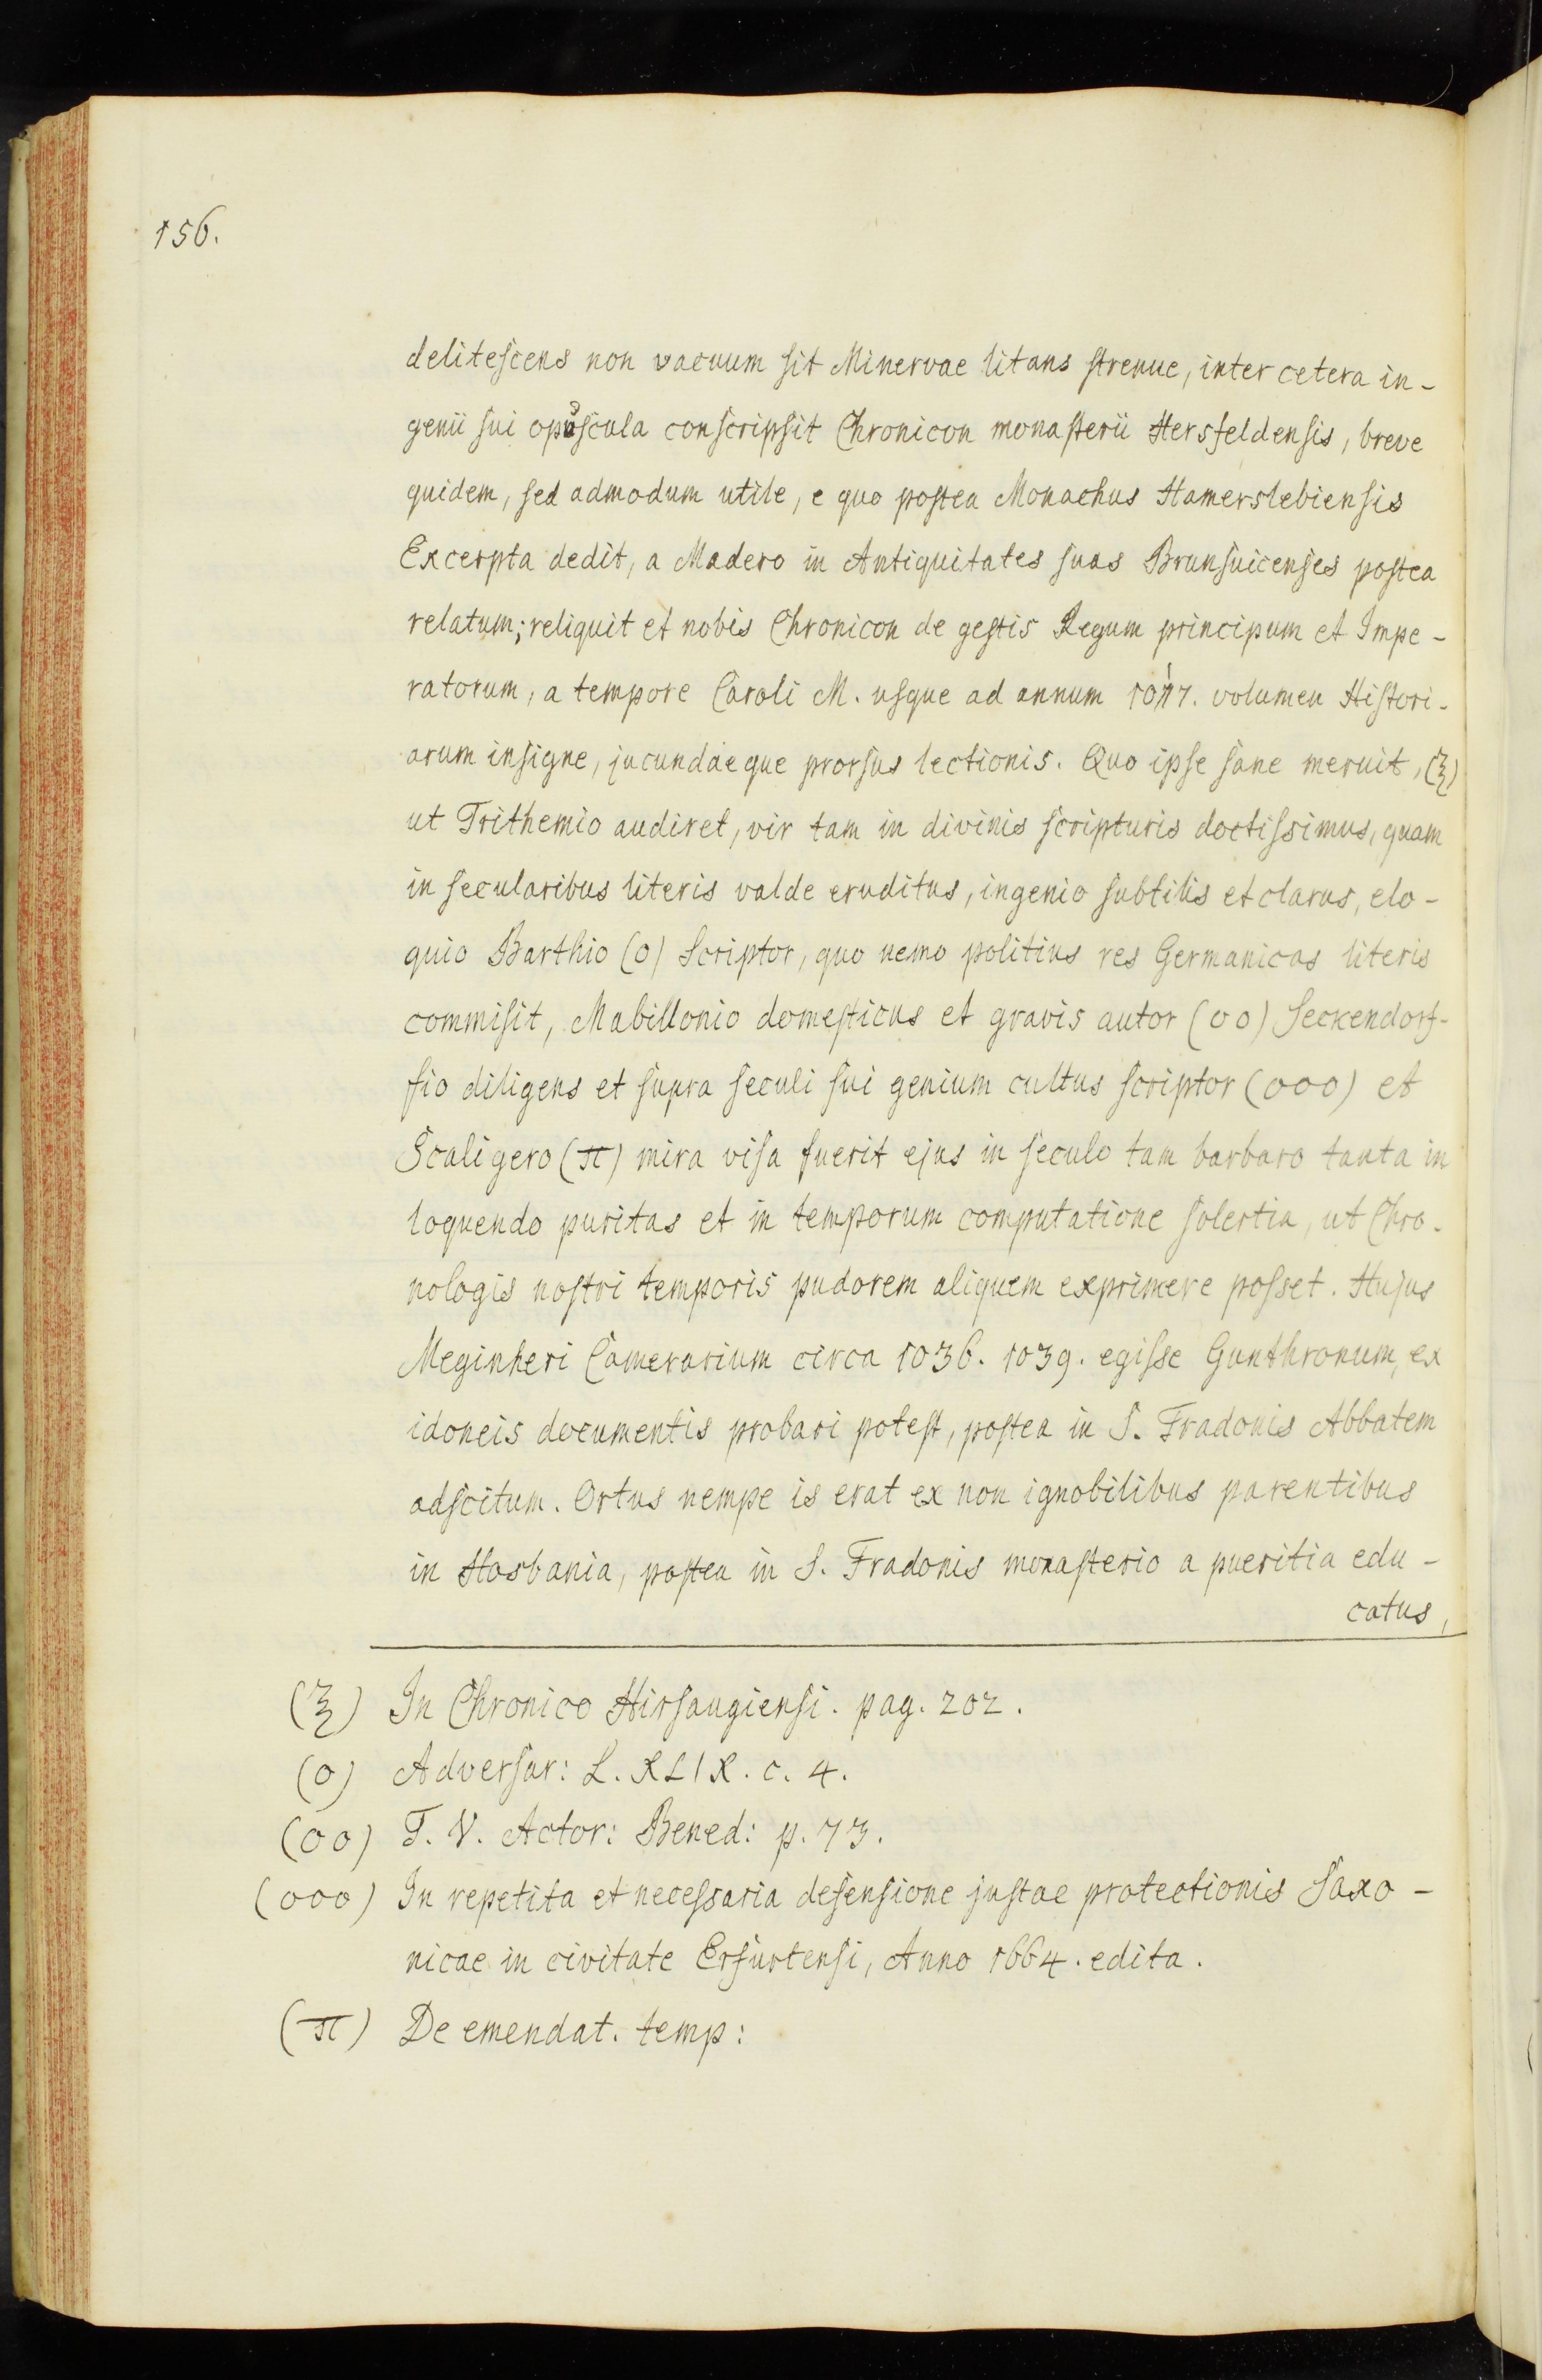 156.
delitescens non vacuum sit Minervae litans strenue, inter cetera in-
genii sui opuscula conscripsit Chronicon monasterii Hersfeldensis, breve
quidem, sed admodum utile, e quo postea Monachus Hamerslebiensis
Excerpta dedit, a Madero in Antiquitates suas Brunsuicenses postea
relatum; reliquit et nobis Chronicon de gestis Regum principum et Impe-
ratorum, a tempore Caroli M. usque ad annum 1077. volumen Histori-
arum insigne, jucundaeque prorsus lectionis. Quo ipse sane meruit, (ξ)
ut Trithemio audiret, vir tam in divinis scripturis doctissimus, quam
in secularibus literis valde eruditus, ingenio subtilis et clarus, elo-
quio Barthio (o) Scriptor, quo nemo politius res Germanicas literis
commisit, Mabillonio domesticus et gravis autor (oo) Seckendorf-
fio diligens et supra seculi sui genium cultus scriptor (ooo) et
Scaligero (π) mira visa fuerit ejus in seculo tam barbaro tanta in
loquendo puritas et in temporum computatione solertia, ut Chro-
nologis nostri temporis pudorem aliquem exprimere posset. Hujus
Meginheri Camerarium circa 1036. 1039. egisse Gunthronum, ex
idoneis documentis probari potest, postea in S. Fradonis Abbatem
adscitum. Ortus nempe is erat ex non ignobilibus parentibus
in Hasbania, postea in S. Fradonis monasterio a pueritia edu-
catus,
(ξ) In Chronico Hirsaugiensi. pag. 202.
(o) Adversar: L. XLIX. c. 4.
(oo) T. V. Actor: Bened: p. 73.
(ooo) In repetita et necessaria defensione justae protectionis Saxo-
nicae in civitate Erfurtensi, Anno 1664. edita.
(π) De emendat. temp: